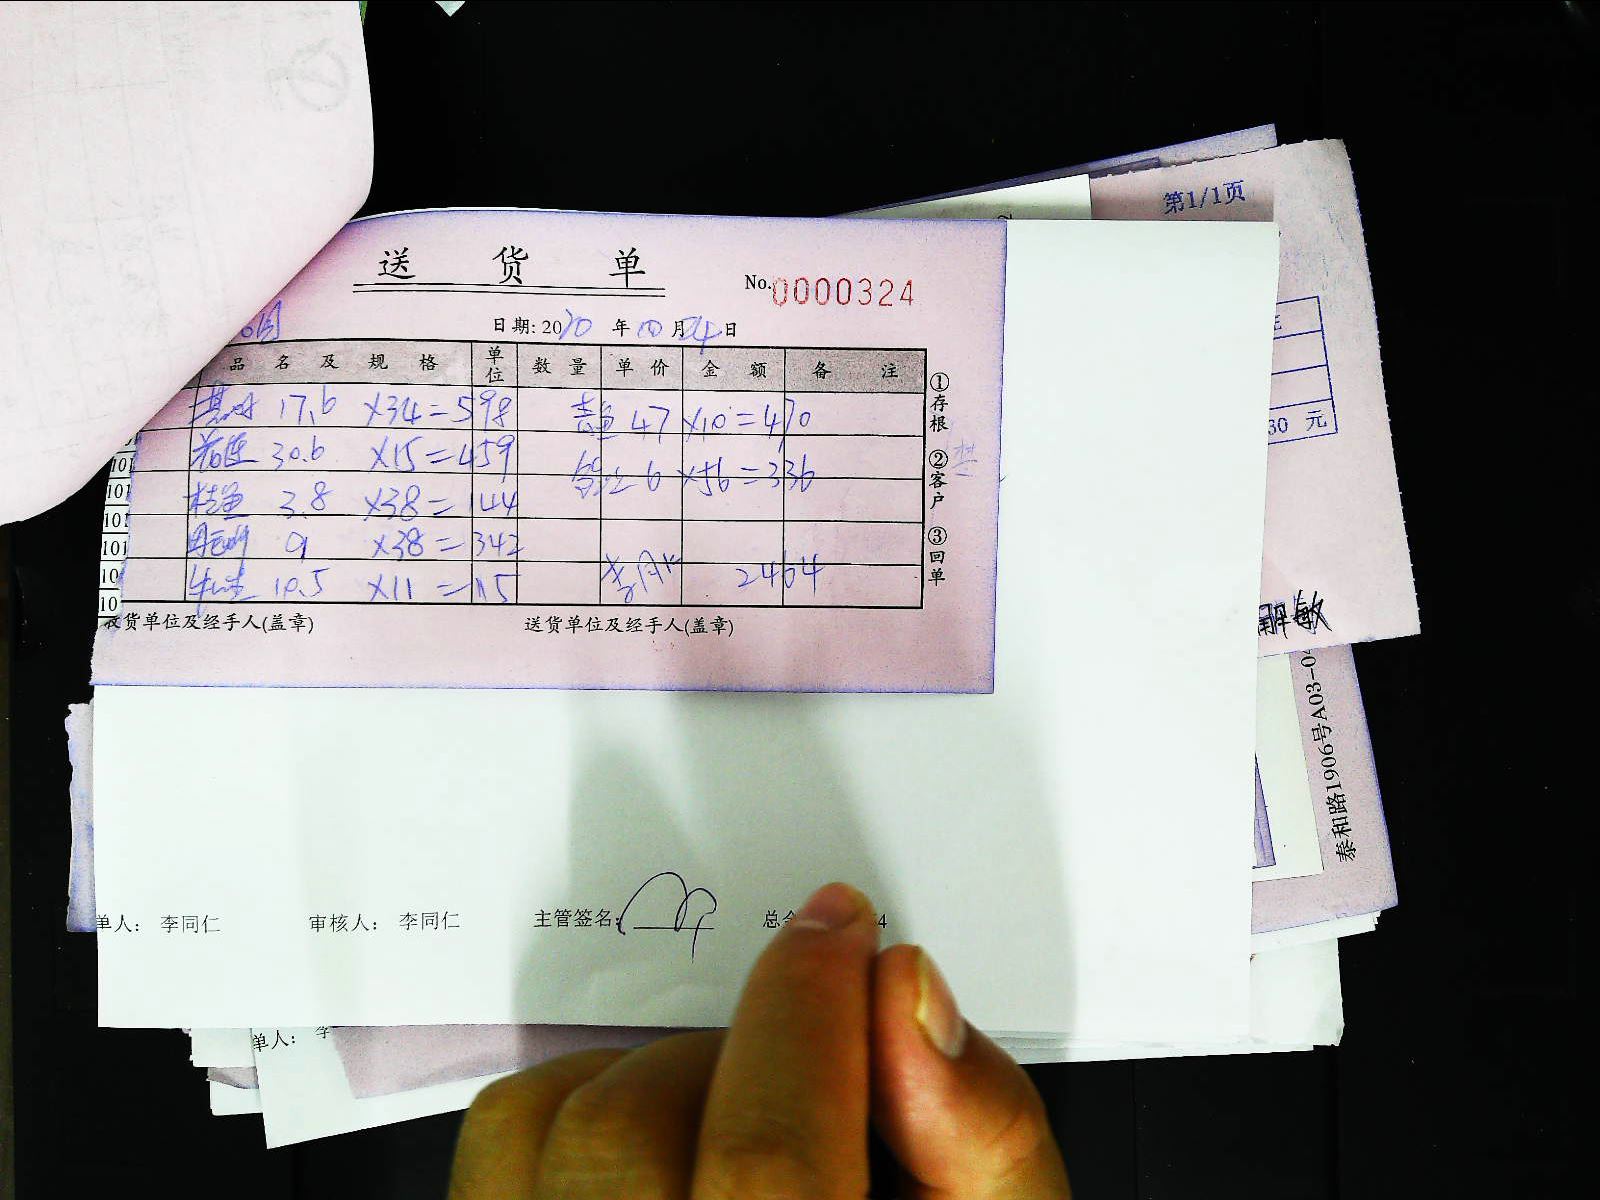 第1/1页
送 货 单
No.0000324
日期: 2020 年 10 月 24 日
品 名 及 规 格 单位 数 量 单 价 金 额 备 注
17.6 ×34=598 47 ×10=470
30.6 ×15=459 6 ×56=336
桂鱼 3.8 ×38=144
9 ×38=342
10.5 ×11=115 2464
①存根 ②客户 ③回单
收货单位及经手人(盖章) 送货单位及经手人(盖章)
101
101
101
101
10
10
30 元
解敏
泰和路1906号A03-0
单人: 李同仁 审核人: 李同仁 主管签名: 总 4
单人: 李